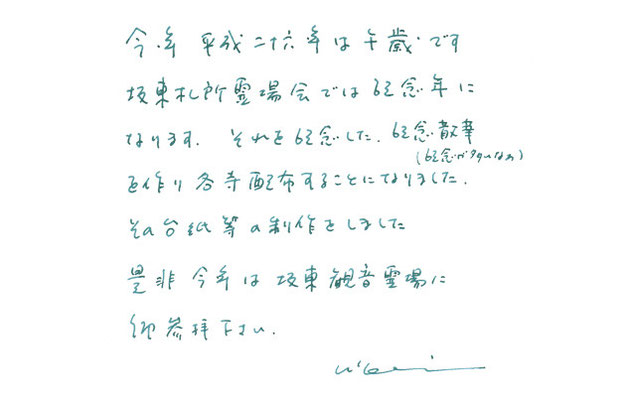 今年 平成二六年は午歳です
坂東札所霊場会では記念年に
なります. それを記念した. 記念散華
(記念が多いなぁ)
を作り各寺配布することになりました.
その台紙等の制作をしました
是非 今年は 坂東観音霊場に
御参拝下さい.